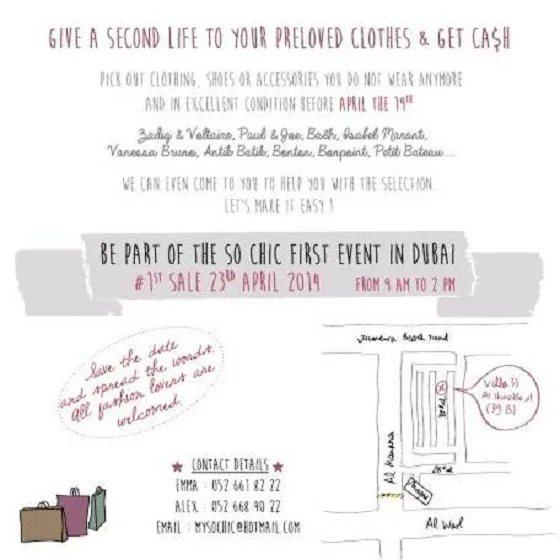 GIVE A SECOND LIFE TO YOUR PRELOVED CLOTHES & GET CA$H
PICK OUT CLOTHING, SHOES OR ACCESSORIES YOU DO NOT WEAR ANYMORE
AND IN EXCELLENT CONDITION BEFORE APRIL THE 19TH
Zadig & Voltaire, Paul & Joe, Ba&h, Isabel Marant,
Vanessa Bruno, Antik Batik, Bonton, Bonpoint, Petit Bateau....
WE CAN EVEN COME TO YOU TO HELP YOU WITH THE SELECTION.
LET'S MAKE IT EASY !
BE PART OF THE SO CHIC FIRST EVENT IN DUBAI
#1ST SALE 23RD APRIL 2014 FROM 9 AM TO 2 PM
Save the date
and spread the words.
All fashion lovers are
welcomed
Jumeira Beach Road
Villa 33
(39 B)
Road
Al Manara
Al Wasl
CONTACT DETAILS
EMMA : 052 661 82 22
ALEX : 052 668 90 22
EMAIL : MYSOCHIC@HOTMAIL.COM